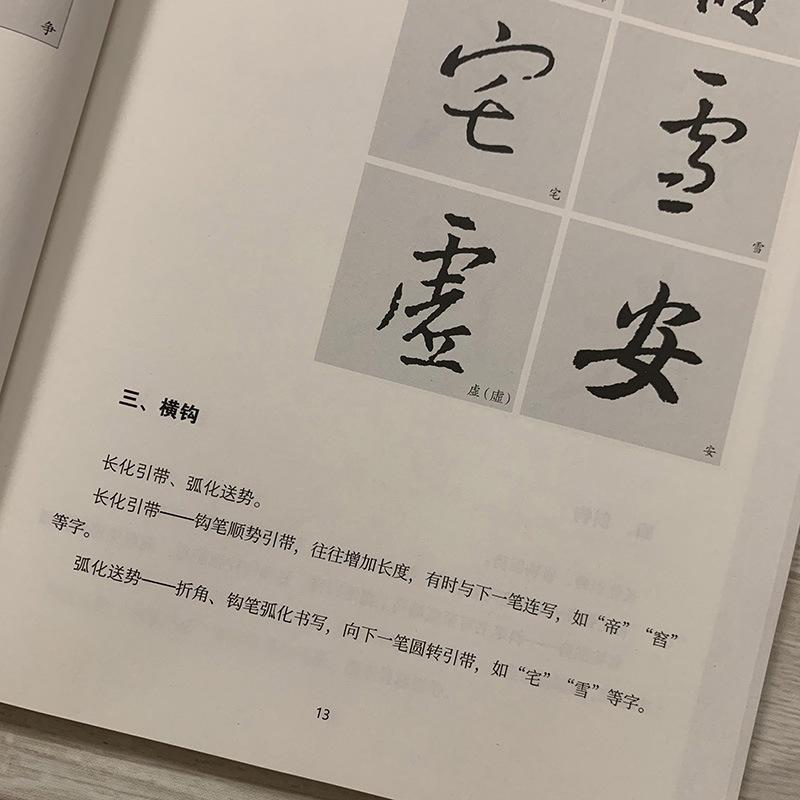 争
宅
雪
宅
雪
虚
安
虚（虛）
安
三、横钩
长化引带、弧化送势。
长化引带——钩笔顺势引带，往往增加长度，有时与下一笔连写，如“帝”“窨”
等字。
弧化送势——折角、钩笔弧化书写，向下一笔圆转引带，如“宅”“雪”等字。
13